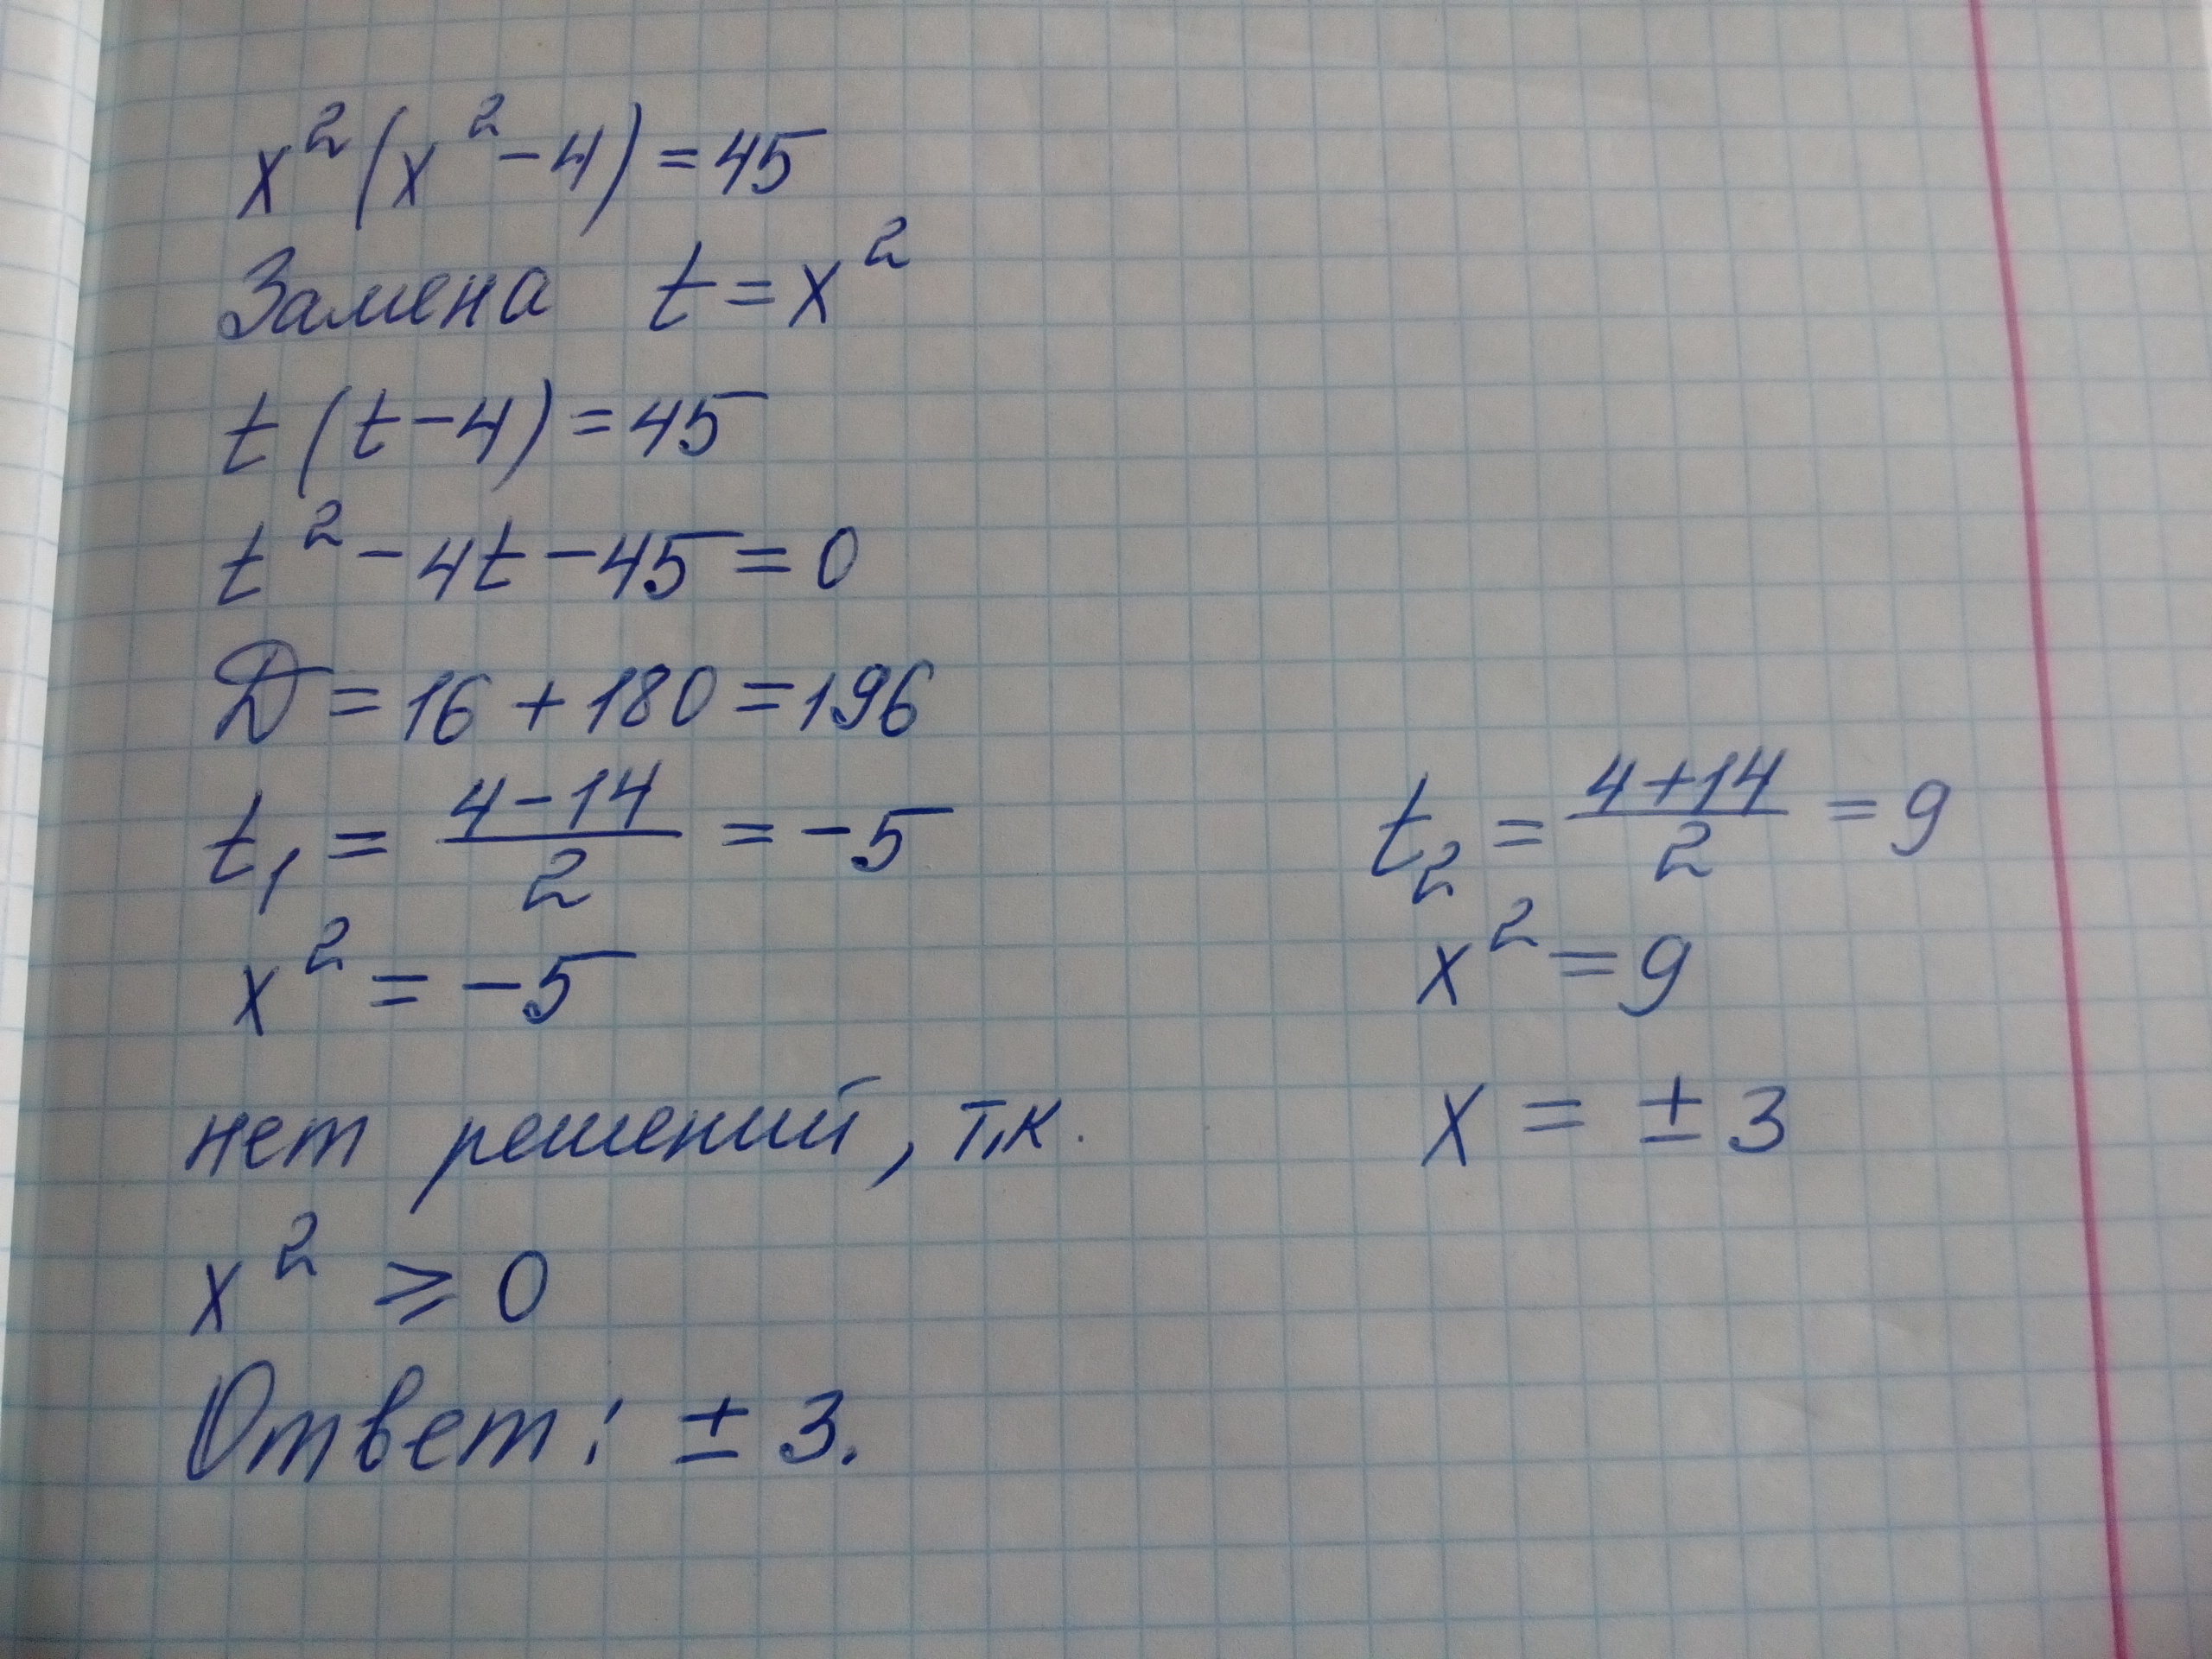 x²(x²-4)=45
Замена t=x²
t(t-4)=45
t²-4t-45=0
D=16+180=196
t₁=(4-14)/2=-5
x²=-5
нет решений, т.к.
x²⩾0
t₂=(4+14)/2=9
x²=9
x=±3
Ответ: ±3.